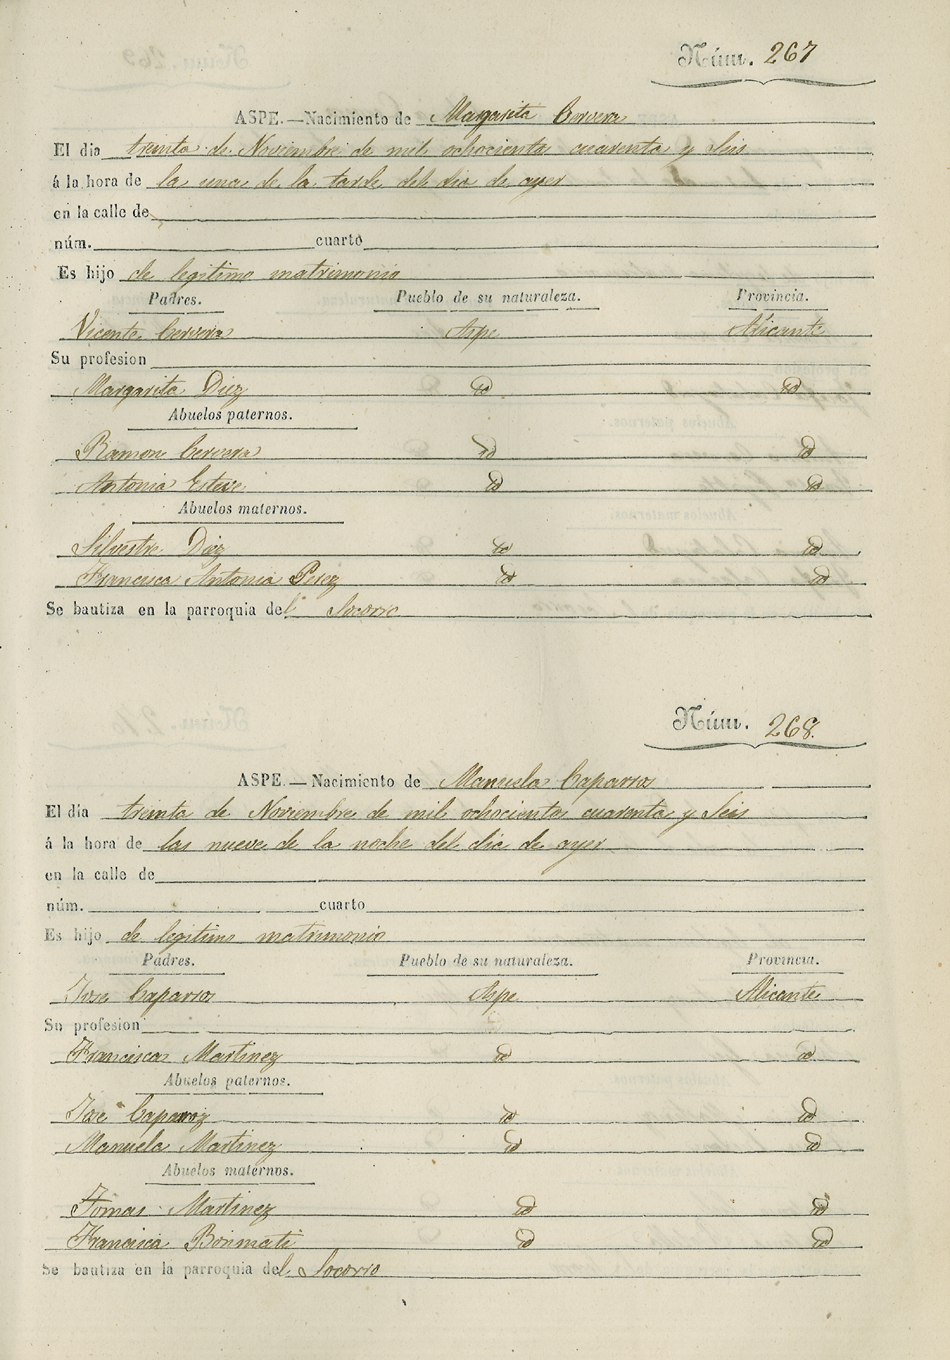 Núm. 267
ASPE.—Nacimiento de Margarita Cervera
El dia treinta de Noviembre de mil ochocientos cuarenta y Seis
á la hora de la una de la tarde del dia de ayer
en la calle de
núm. cuarto
Es hijo de legitimo matrimonio
Padres. Pueblo de su naturaleza. Provincia.
Vicente Cervera Aspe Alicante
Su profesion
Margarita Diez id id
Abuelos paternos.
Ramon Cervera id id
Antonia Esteve id id
Abuelos maternos.
Silvestre Diez id id
Francisca Antonia Perez id id
Se bautiza en la parroquia del Socorro
Núm. 268.
ASPE.—Nacimiento de Manuela Caparros
El dia treinta de Noviembre de mil ochocientos cuarenta y Seis
á la hora de las nueve de la noche del dia de ayer
en la calle de
núm. cuarto
Es hijo de legitimo matrimonio
Padres. Pueblo de su naturaleza. Provincia.
Jose Caparros Aspe Alicante
Su profesion
Francisca Martinez id id
Abuelos paternos.
Jose Caparroz id id
Manuela Martinez id id
Abuelos maternos.
Tomas Martinez id id
Francisca Bonmati id id
Se bautiza en la parroquia del Socorro